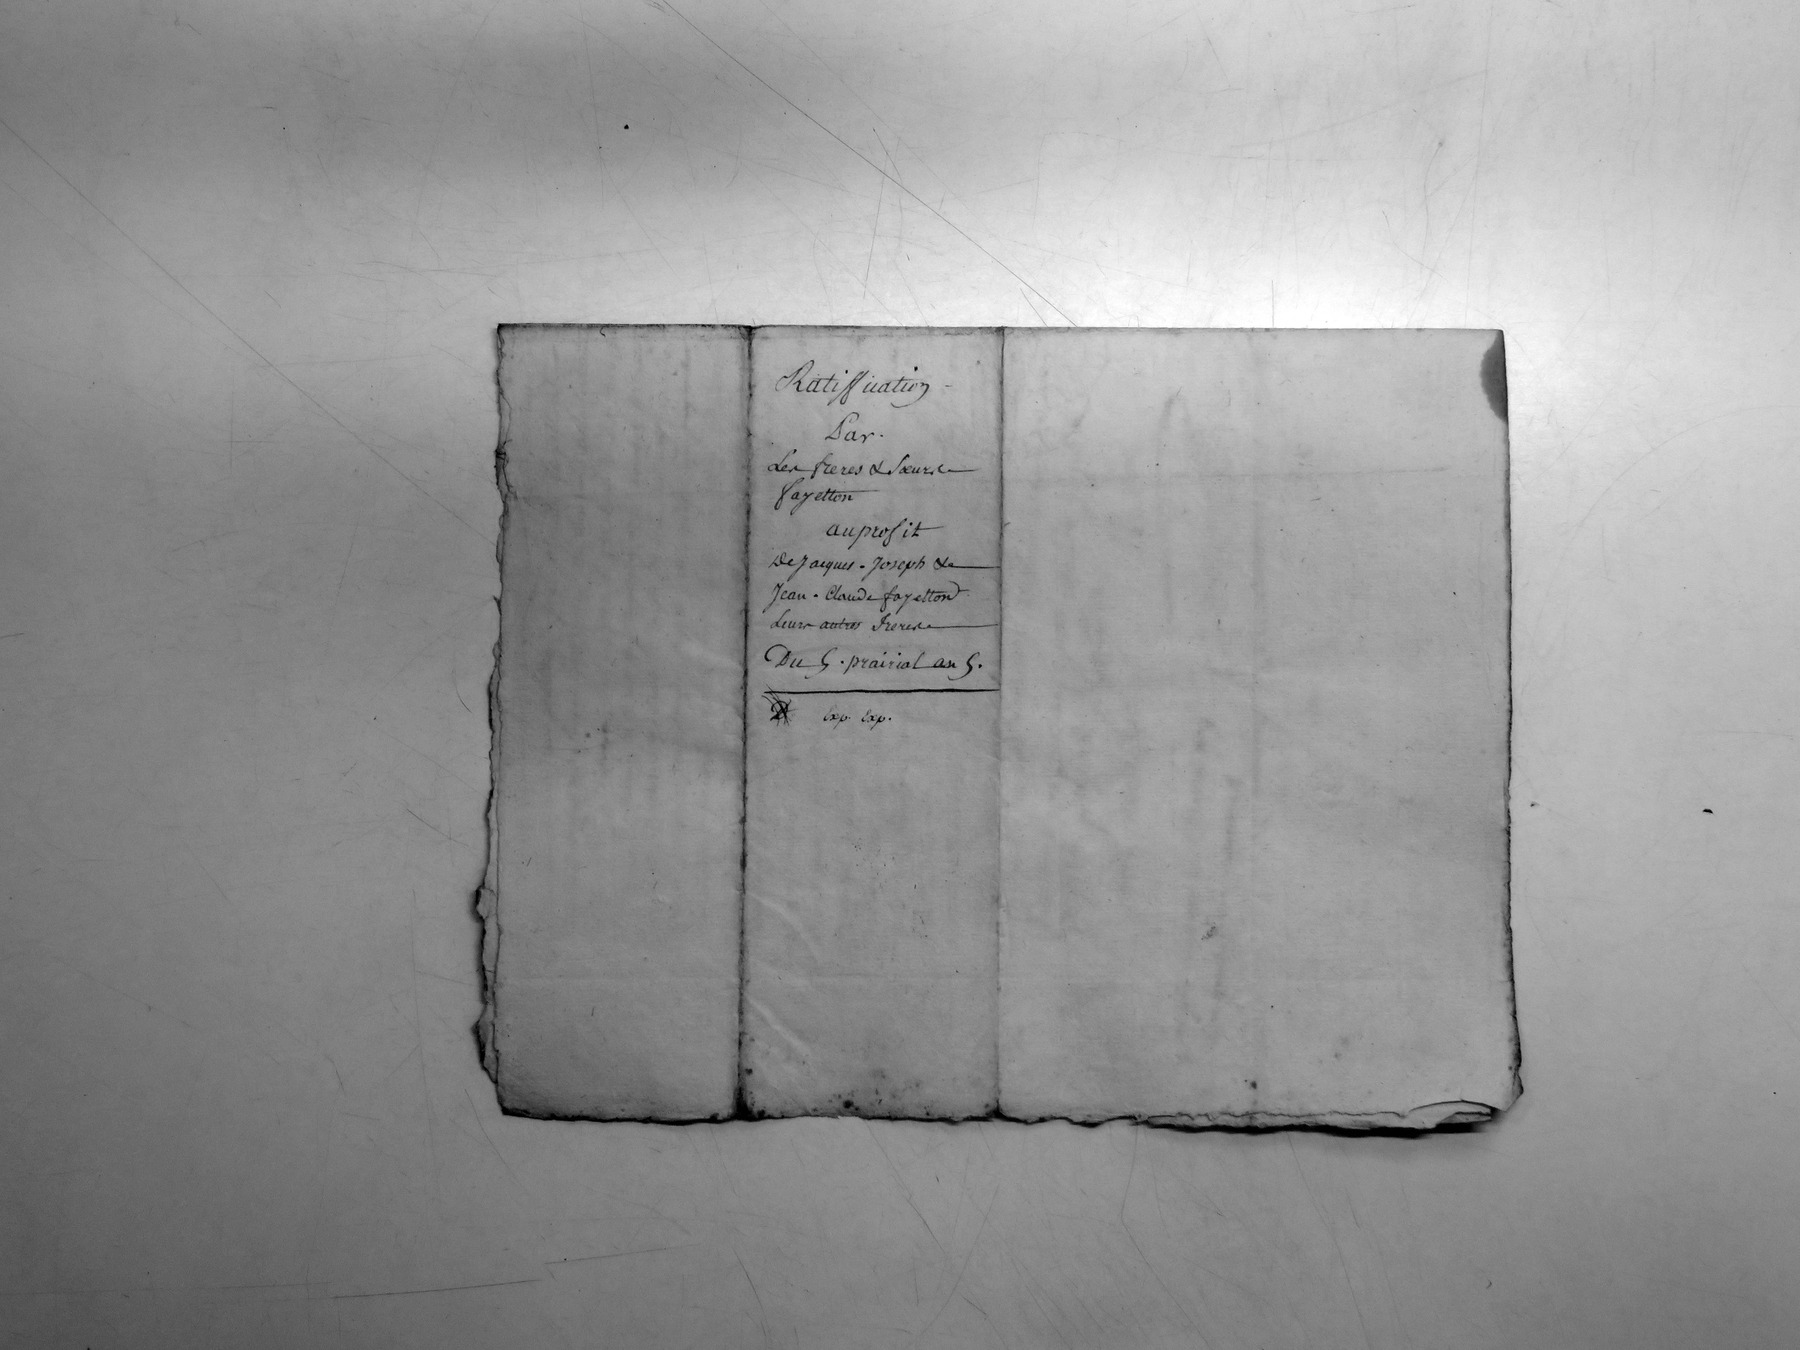 Ratiffication -
Par.
Les freres & sœurs
fayetton
au profit
De Jacques - Joseph &
Jean - Claude fayetton
Leurs autres freres
Du 5. prairial an 5.
Exp. Exp.